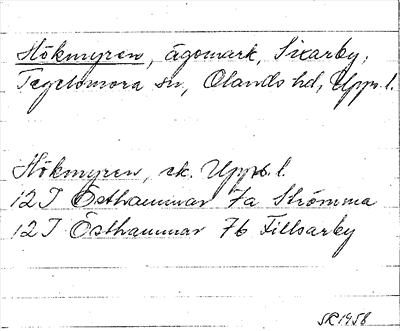 Hökmyren, ägomark, Sixarby,
Tegelsmora sn, Olands hd, Upps. l.
Hökmyren, ek. Upps. l.
12 I Östhammar 7a Strömma
12 I Östhammar 7b Fillsarby
SR 1958